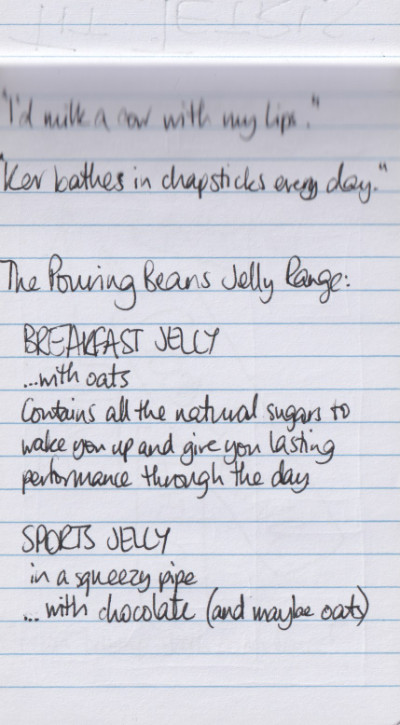 "I'd milk a cow with my lips."
"Kev bathes in chapsticks every day."
The Pouring Beans Jelly Range:
BREAKFAST JELLY
...with oats
Contains all the natural sugars to
wake you up and give you lasting
performance through the day
SPORTS JELLY
in a squeezy pipe
... with chocolate (and maybe oats)